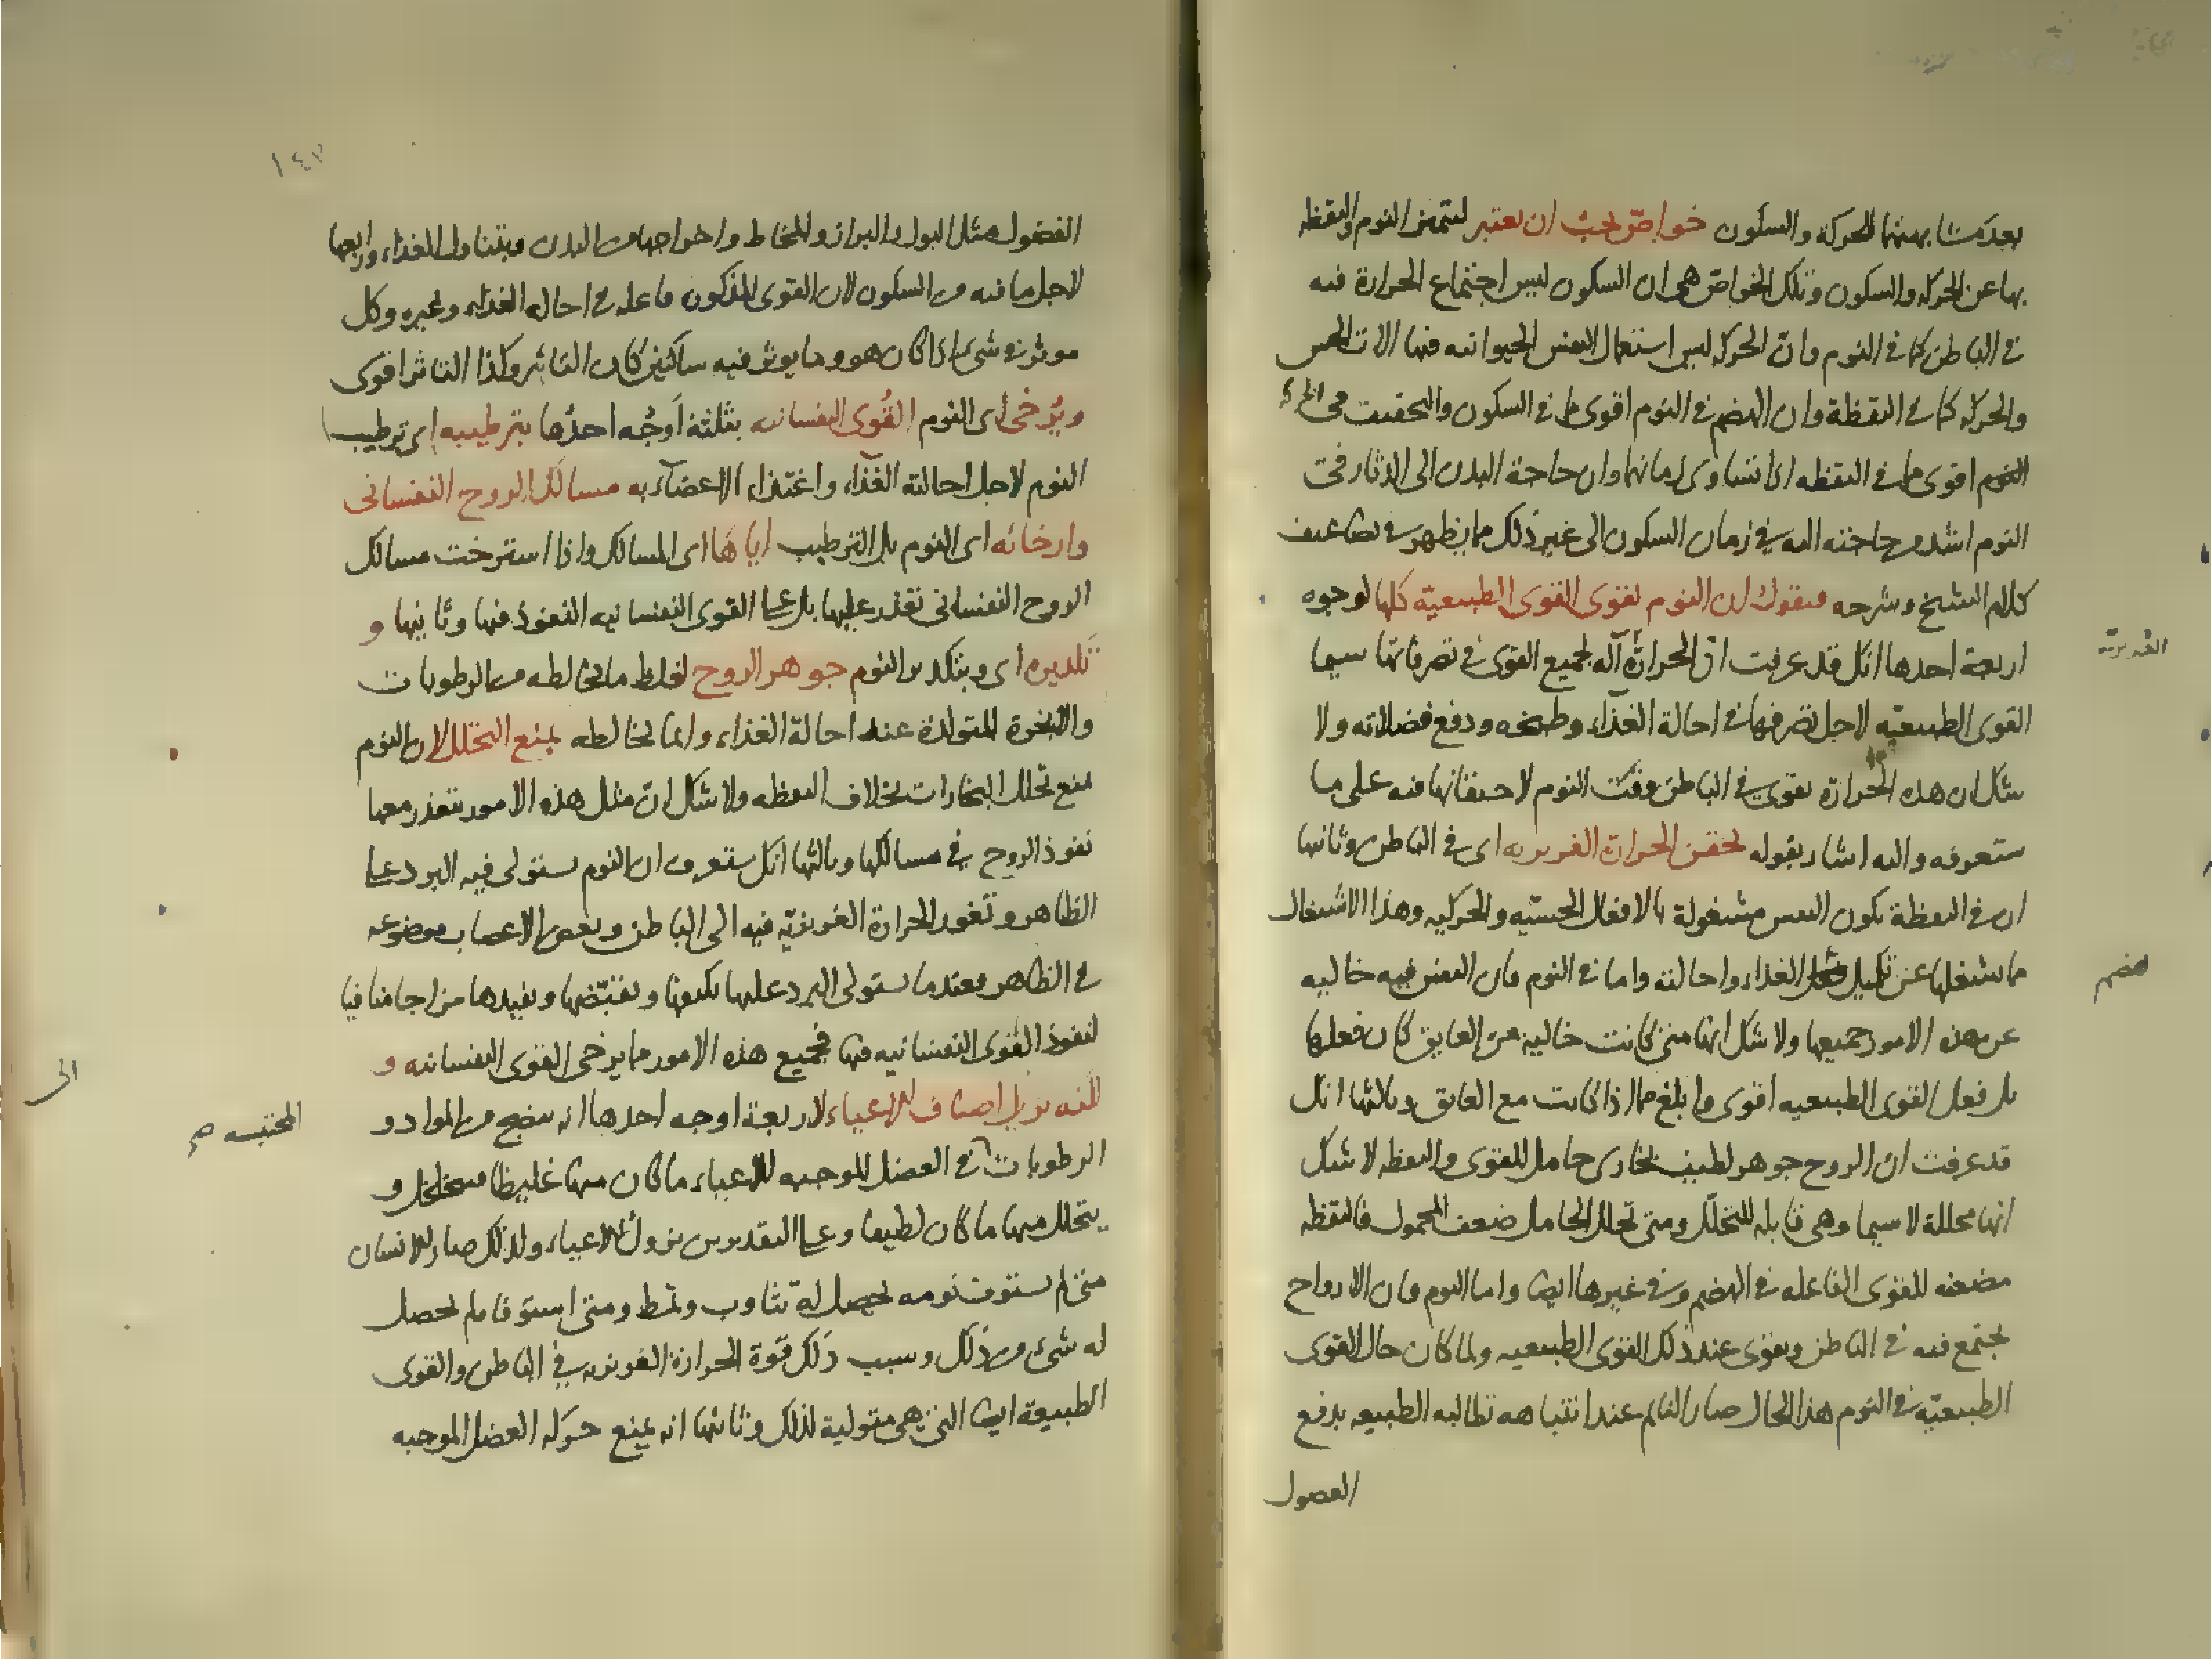 بعد مشابهتهما للحركة والسكون خواصّ يجب ان تعتبر ليتميز النوم واليقظه
بها عن الحركه والسكون وتلك الخواصّ هى ان السكون ليس اجتماع الحرارة فيه
فى الباطن كما فى النوم وانّ الحركه ليس استعمال النفس الحيوانيه فيها الات الحس
والحركه كما فى اليقظة وان الهضم فى النوم اقوى مما فى السكون والتحقيت فى
النوم اقوى مما فى اليقظه اذا تساوى زمانهما وان حاجة البدن الى الدثار فى
النوم اشد من حاجته اليه فى زمان السكون الى غير ذلك مما يظهر فى تضاعيف
كلام الشيخ وشرحه فنقول ان النوم يقوى القوى الطبيعيّة كلها لوجوه
اربعة احدها انك قد عرفت انّ الحرارة آلة لجميع القوى فى تصرفاتها سيما
القوى الطبيعيّه لاجل تصرفها فى احالة الغذاء وطبخه ودفع فضلاته ولا
شك ان هذه الحرارة تقوى فى الباطن وقت النوم لاحتقانها فيه على ما
ستعرفه واليه اشار بقوله بحقن الحرارة الغريزيه اى فى الباطن وثانيها
ان فى اليقظة تكون النفس مشغولة بالافعال الحسّيّه والحركيه وهذا الاشتغال
مما يشغلها عن تكميل الغذاء واحالته واما فى النوم فان النفس فيه خاليه
عن هذه الامور جميعها ولا شك انها متى كانت خاليه عن العايق كان فعلها
بل فعل القوى الطبيعيه اقوى وابلغ مما اذا كانت مع العائق وثالثها انك
قد عرفت ان الروح جوهر لطيف بخارى حامل للقوى واليقظه لا شك
انها محللة لا سيما وهى قابله للتحلّل ومتى تحلل الحامل ضعف المحمول فاليقظه
مضعفه للقوى الفاعله فى الهضم وفى غيرها ايضا واما النوم فان الارواح
تجتمع فيه فى الباطن وتقوى عند ذلك القوى الطبيعيه ولما كان حال القوى
الطبيعيّه فى النوم هذا الحال صار النائم عند انتباهه تطالبه الطبيعه بدفع
الفضول
الغريزيّه
هضم
١٤٣
الفضول مثل البول والبراز والمخاط واخراجها من البدن وبتناول الغذاء ورابعها
لاجل ما فيه من السكون لان القوى المذكون فاعله فى احاله الغذاء وغيره وكل
موثر فى شى اذا كان هو وما يوثر فيه ساكنين كان التاثير وكذا التاثر اقوى
ويُرخى اى النوم القُوى النفسانيه بثلثة اَوجُه احدُها بترطيبه اى ترطيب
النوم لاجل احالته الغذاء واغتذاء الاعضاء به مسالك الروح النفسانى
وارخائه اى النوم بل الترطيب اياها اى المسالك واذا استرخت مسالك
الروح النفسانى تعذر عليها بل على القوى النفسانيه النفوذ فيها وثانيها و
تكديره اى وبتكدير النوم جوهر الروح لغلظ ما يخالطه من الرطوبات
والابخرة المتولدة عند احالة الغذاء وانما يخالطه بمنع التحلل لان النوم
يمنع تحلل البخارات بخلاف اليقظه ولا شك انّ مثل هذه الامور يتعذر معها
نفوذ الروح فى مسالكها وثالثها انك ستعرف ان النوم يستولى فيه البرد على
الظاهر وتغور الحرارة الغريزيّه فيه الى الباطن وبعض الاعصاب موضوعه
فى الظاهر فعندما يستولى البرد عليها يكثفها ويقبّضها ويفيدها مزاجا منافيا
لنفوذ القوى النفسانيه فيها فجميع هذه الامور مما يرخى القوى النفسانيه و
لكنه يزيل اصناف الاعياء لاربعة اوجه احدها انه ينضج من المواد و
الرطوبات فى العضل الموجبه للاعياء ما كان منها غليظا فيتحلل و
يتحلل منها ما كان لطيفا وعلى التقديرين يزول الاعياء ولذلك صار الانسان
متى لم يستوف نومه يحصل له تثاوب وتمط ومتى استوفا ملم يحصل
له شئ من ذلك وسبب ذلك قوّة الحرارة الغريزيه فى الباطن والقوى
الطبيعة ايضا التى هى متولية لذلك وثانيها انه يمنع حركه العضل الموجبه
الى
المحتبسه صح